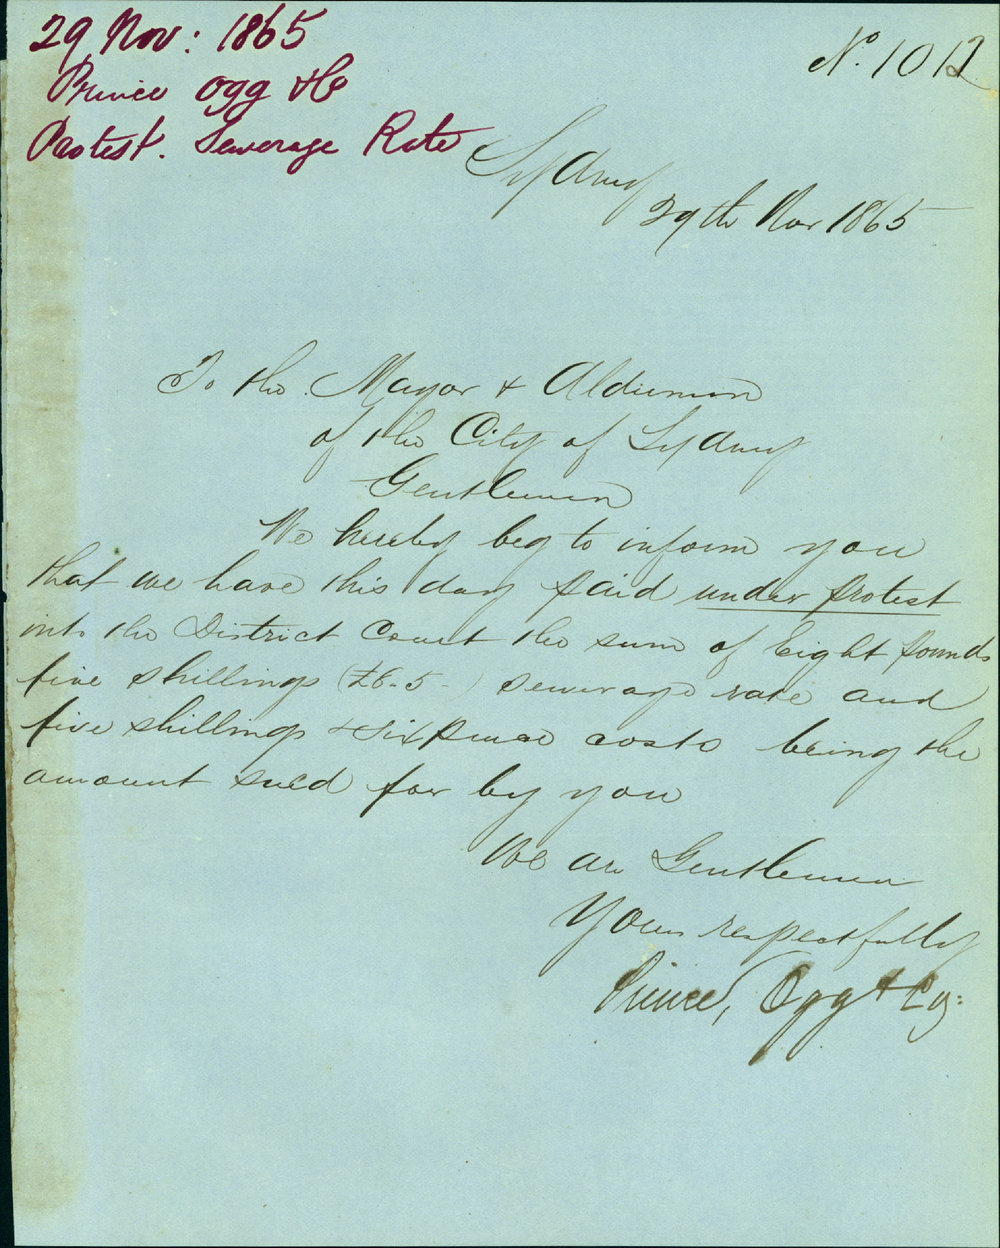 29 Nov: 1865
Prince Ogg & Co
Protest. Sewerage Rate
No. 1012
Sydney
29th Nov 1865
To the Mayor & Aldermen
of the City of Sydney
Gentlemen
We hereby beg to inform you
that we have this day paid under protest
into the District Court the sum of Eight pounds
five shillings (£8-5-) sewerage rate and
five shillings & sixpence costs being the
amount sued for by you
We are Gentlemen
Yours respectfully
Prince, Ogg & Co: